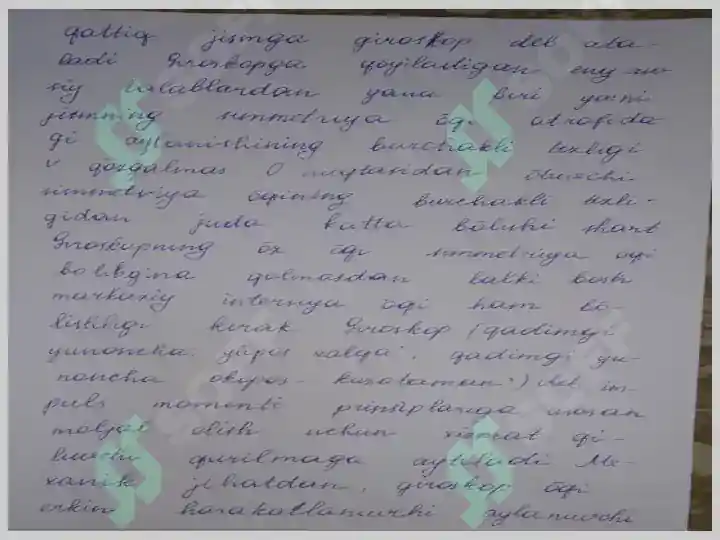 qattiq jismga giroskop deb ata-
ladi Giroskopga qoyiladigan eng aso-
siy talablardan yana biri ya'ni
jismning simmetriya öqi atrofida
gi aylanishining burchakli tezligi
v qözgalmas O nuqtasidan ötuvchi
simmetriya öqining burchakli tezli-
gidan juda katta bölishi shart
Giroskopning öz öqi simmetriya öqi
bolibgina qolmasdan balki bosh
markaziy intersiya öqi ham bö-
lishligi kerak Giroskop (qadimgi
yunoncha xalqa, qadimgi yu-
noncha kuzataman") deb im-
puls momenti prinsiplariga asosan
moljal olish uchun xizmat qi-
luvchi qurilmaga aytiladi Me-
xanik jihatdan, giroskop öqi
erkin harakatlanuvchi aylanuvchi